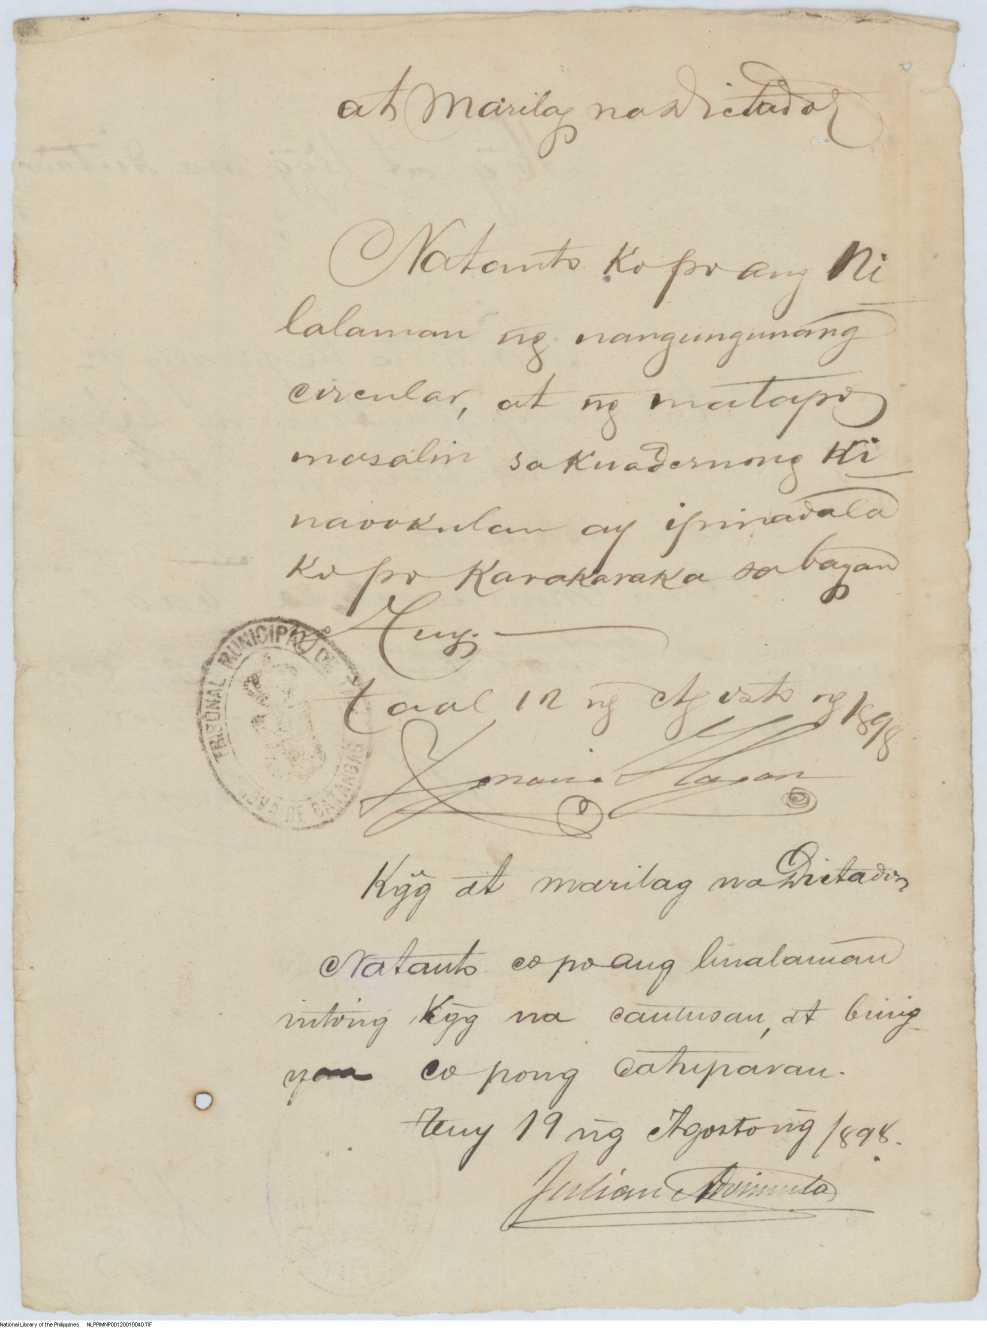 at Marilag na Dictador
Natanto ko po ang Ni
lalaman ng nangungunang
circular, at ng matapos
masalin sa kuadernong Ki
naookulan ay ipinadala
ko po karakaraka sa bayan
Tuy.
Taal 12 ng Agosto ng 1898
TRIBUNAL MUNICIPAL DE
DE BATANGAS
Kgg at marilag na Dictador
Natanto co po ang linalaman
nitong Kgg na cautusan, at binig
yan co pong catuparan.
Tuy 19 ng Agosto ng 1898.
Julian
National Library of the Philippines NLPPIMNP00120010040.TIF